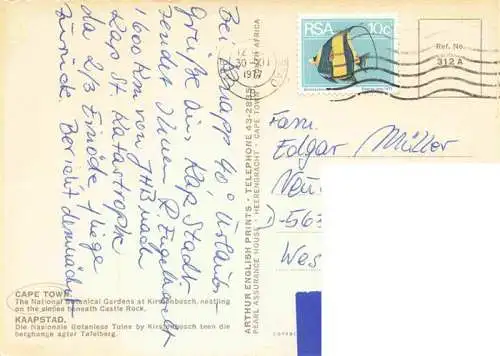 Bei knapp 40° Urlaubs-
grüße aus Kapstadt
sendet Ihnen R. Engelhardt
1600 Km von JHB nach
Kap St. Katastrophe
da 2/3 Einöde + liege
zurück. Bericht demnächst
RSA 10c
1977
Ref. No.
312A
Fam.
Edgar Müller
D-563
Wes
ARTHUR ENGLISH PRINTS - TELEPHONE 43-28
PEARL ASSURANCE HOUSE - HEERENGRACHT - CAPE TOWN - SOUTH AFRICA
CAPE TOWN.
The National Botanical Gardens at Kirstenbosch, nestling
on the slopes beneath Castle Rock.
KAAPSTAD.
Die Nasionale Botaniese Tuine by Kirstenbosch teen die
berghange agter Tafelberg.